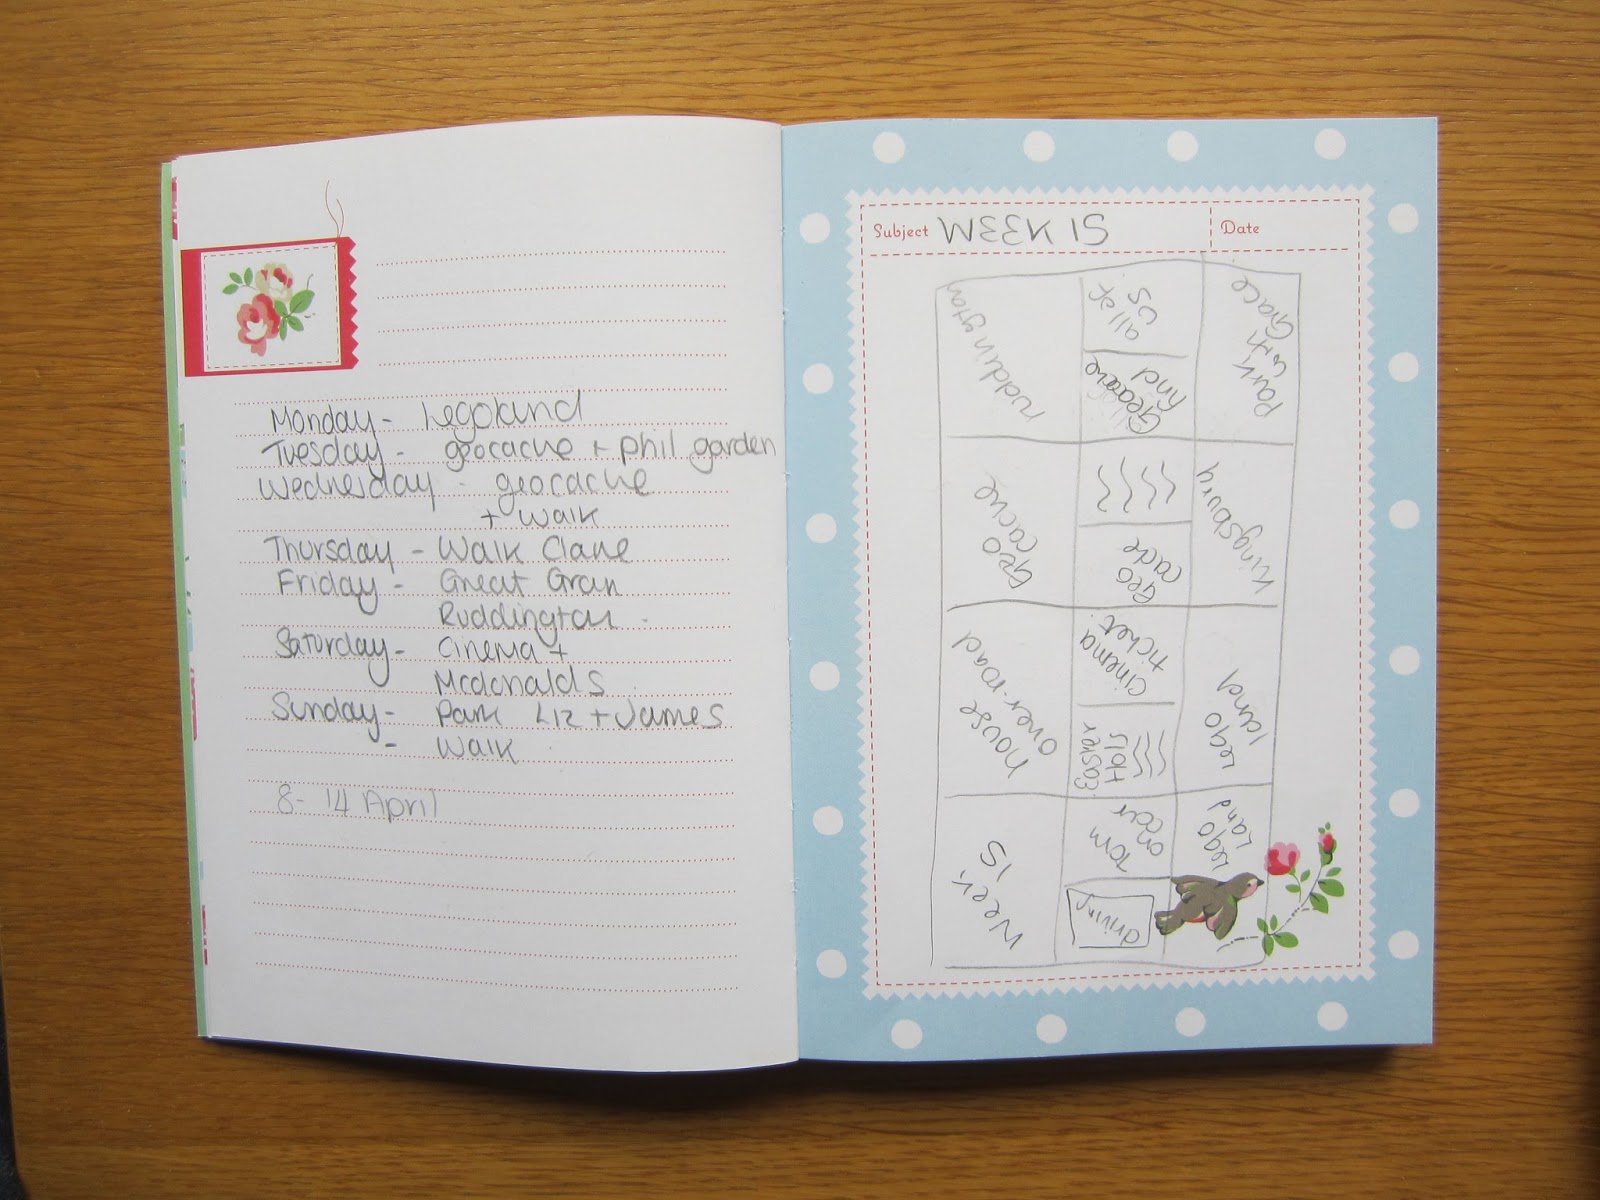 Monday - Legoland
Tuesday - geocache + Phil garden
Wednesday - geocache
+ Walk
Thursday - Walk Clare
Friday - Great Gran
Ruddington
Saturday - Cinema +
Mcdonalds
Sunday - Park Liz + James
- Walk
8 - 14 April
Subject WEEK 15
Date
Week 15
house
over road
Geo
cache
ruddington
driving
Tom
on car
Easter
Hols
cinema
ticket
Geo
cache
Geocache
find
us
Lego
Land
Lego
land
Kingsbury
Park
with
Grace